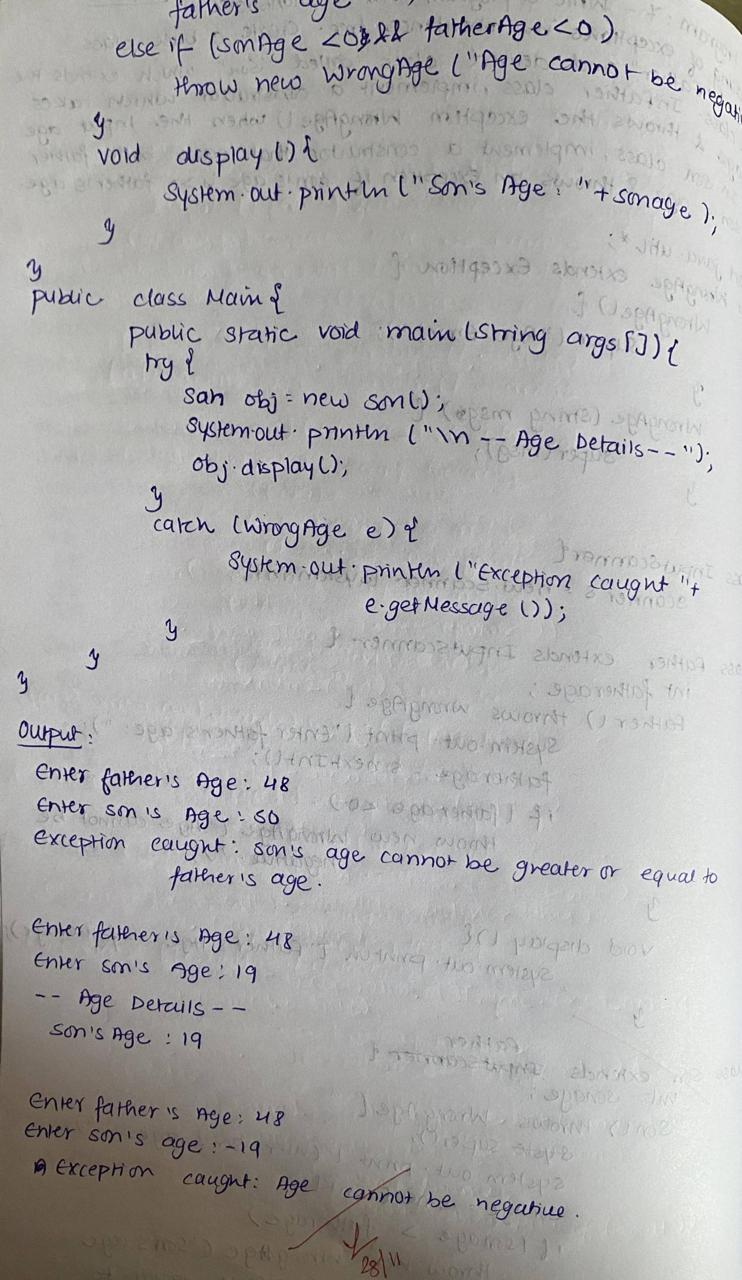 father's age
else if (sonAge <0 && fatherAge <0)
throw new WrongAge ("Age cannot be negati
}
void display () {
System.out.println ("Son's Age: "+sonage);
}
}
public class Main {
public static void main (String args[]) {
try {
San obj = new son();
System.out.println ("\n -- Age Details--");
obj.display();
}
catch (WrongAge e) {
System.out.println ("Exception caught "+
e.getMessage ());
}
}
}
Output:
Enter father's Age: 48
Enter son's Age: 50
Exception caught: son's age cannot be greater or equal to
father's age.
Enter father's Age: 48
Enter son's Age: 19
-- Age Details --
son's Age : 19
Enter father's Age: 48
Enter son's age : -19
Exception caught: Age cannot be negative.
28/11